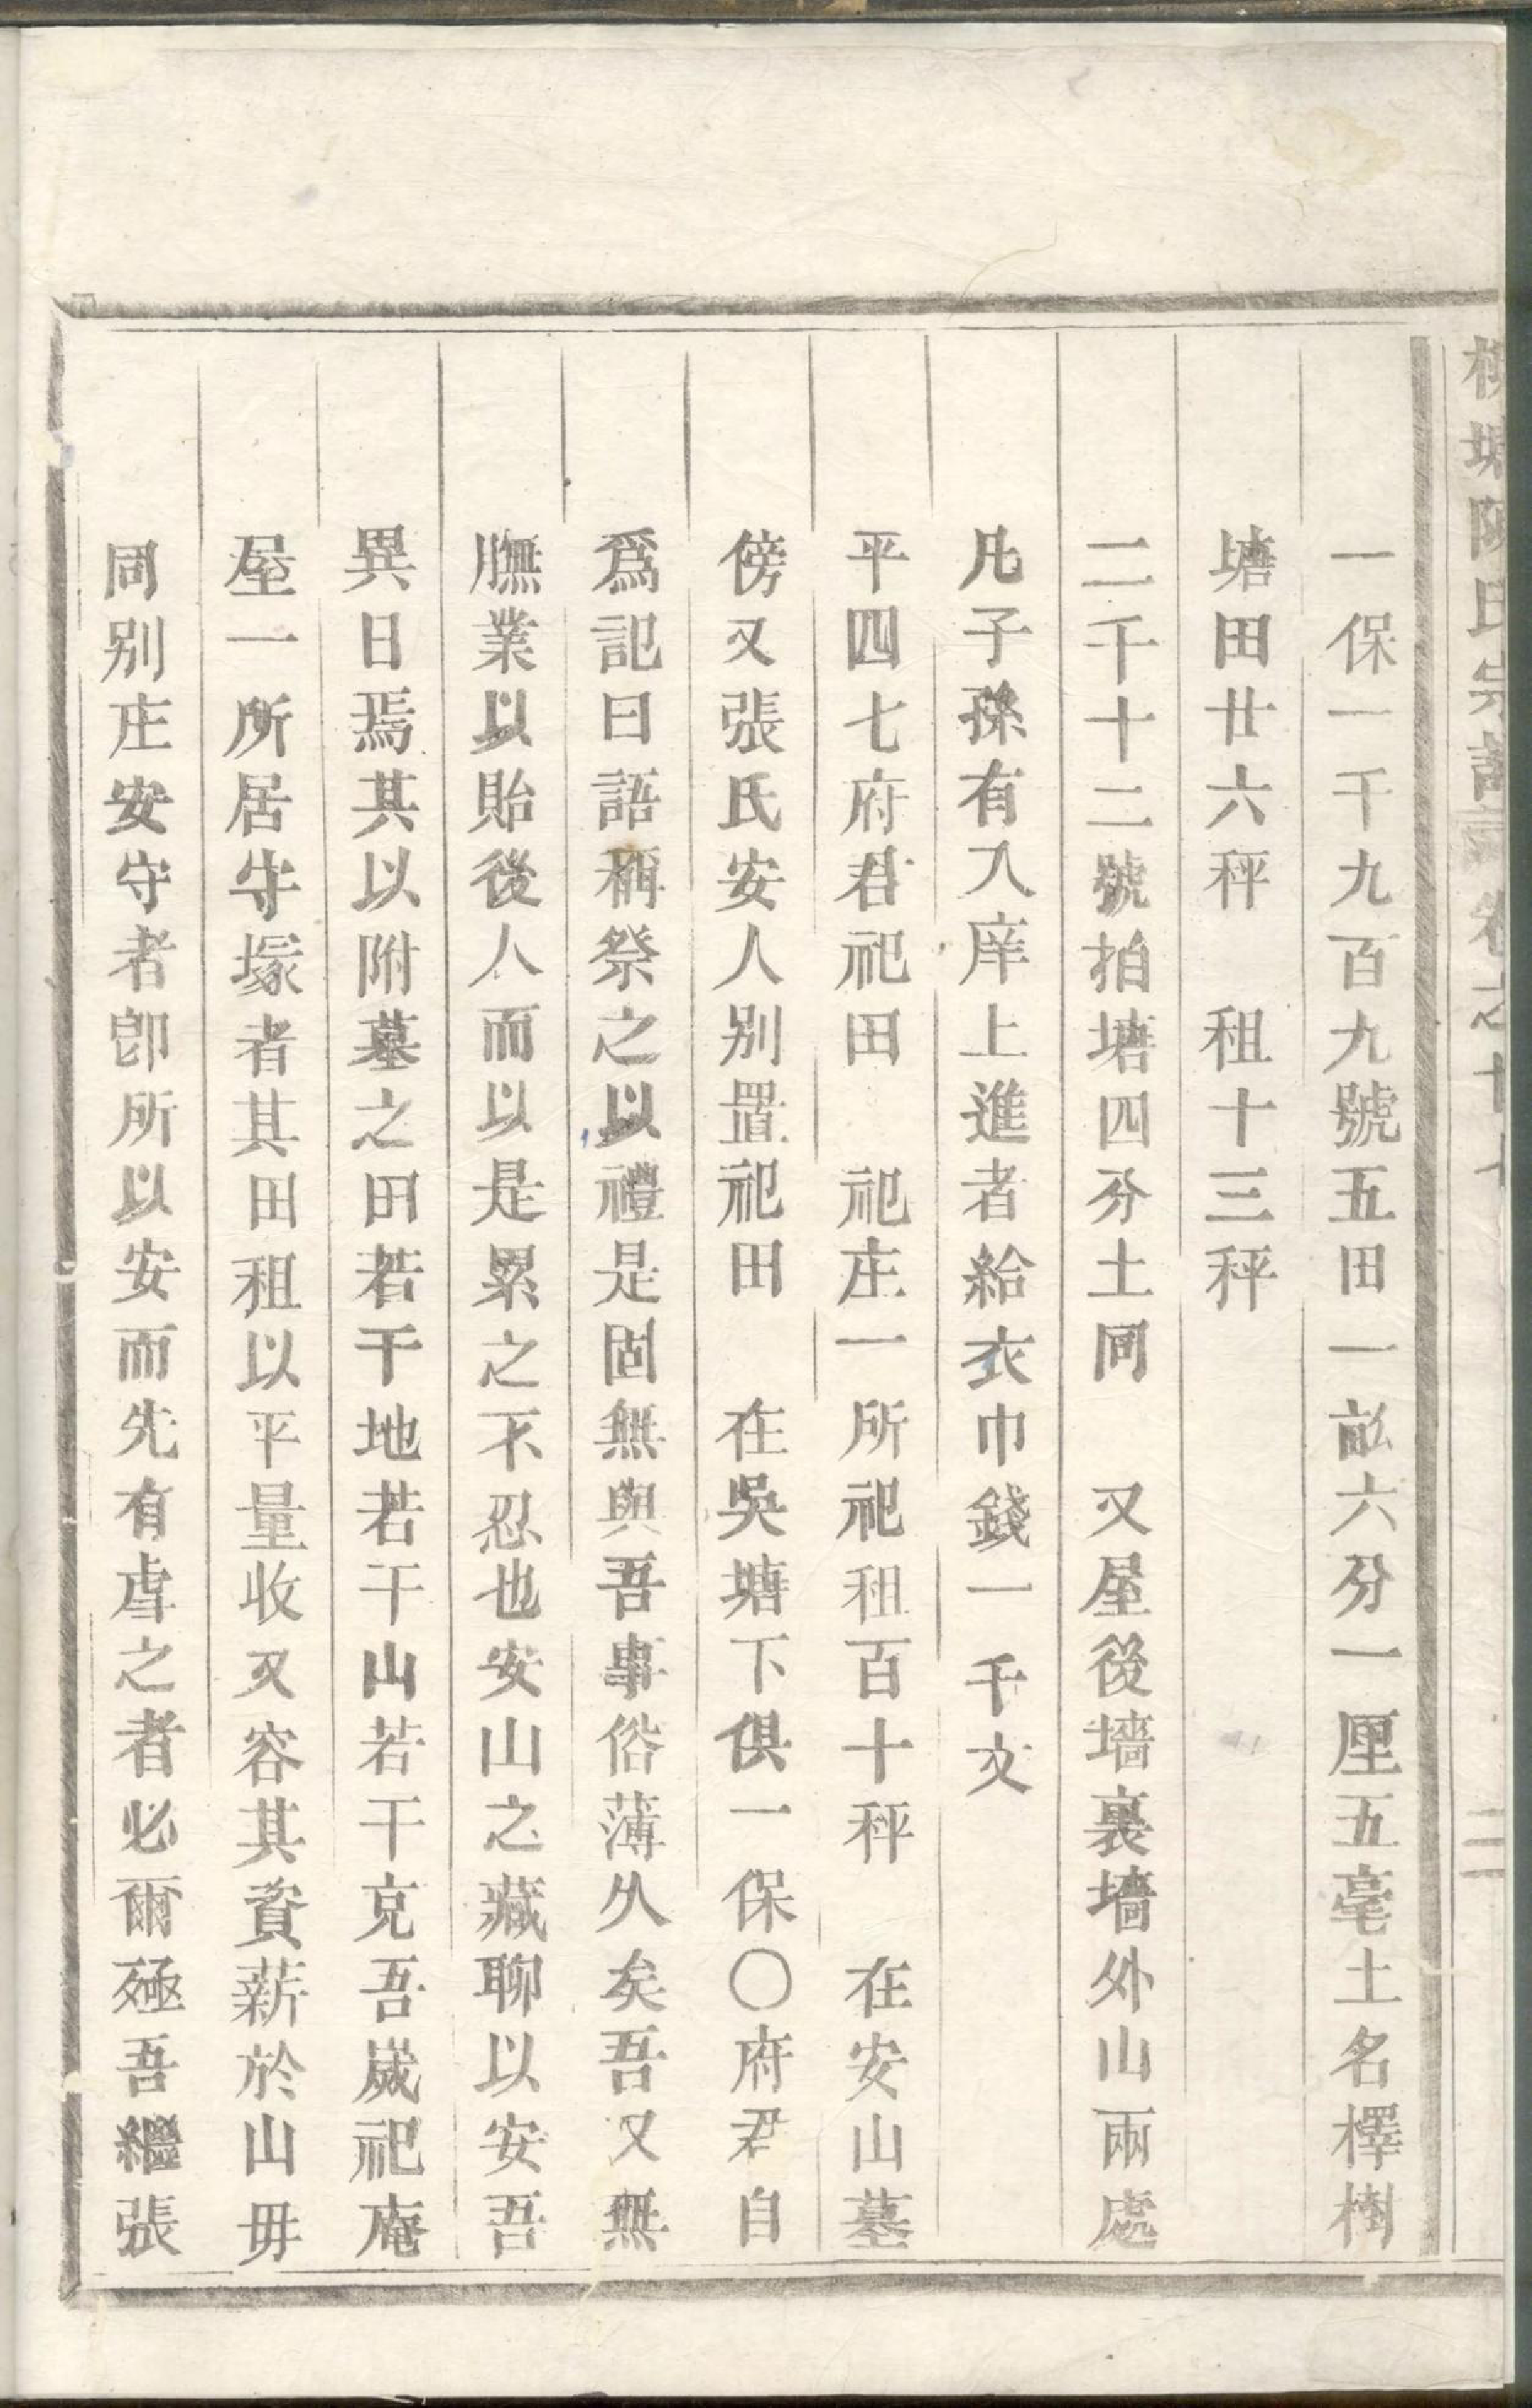 塘陳氏宗譜 卷之廿七 二
一保一千九百九號五田一畝六分一厘五毫土名檡樹
塘田廿六秤　租十三秤
二千十二號拍塘四分土同　又屋後墻裏墻外山兩處
凡子孫有入庠上進者給衣巾錢一千文
平四七府君祀田　祀庄一所祀租百十秤　在安山墓
傍又張氏安人別置祀田　在吳塘下俱一保〇府君自
爲記曰語稱祭之以禮是固無與吾事俗薄久矣吾又無
膴業以貽後人而以是累之不忍也安山之藏聊以安吾
異日焉其以附墓之田若干地若干山若干克吾嵗祀庵
屋一所居守塚者其田租以平量收又容其資薪於山毋
同别庄安守者卽所以安而先有虐之者必爾殛吾繼張